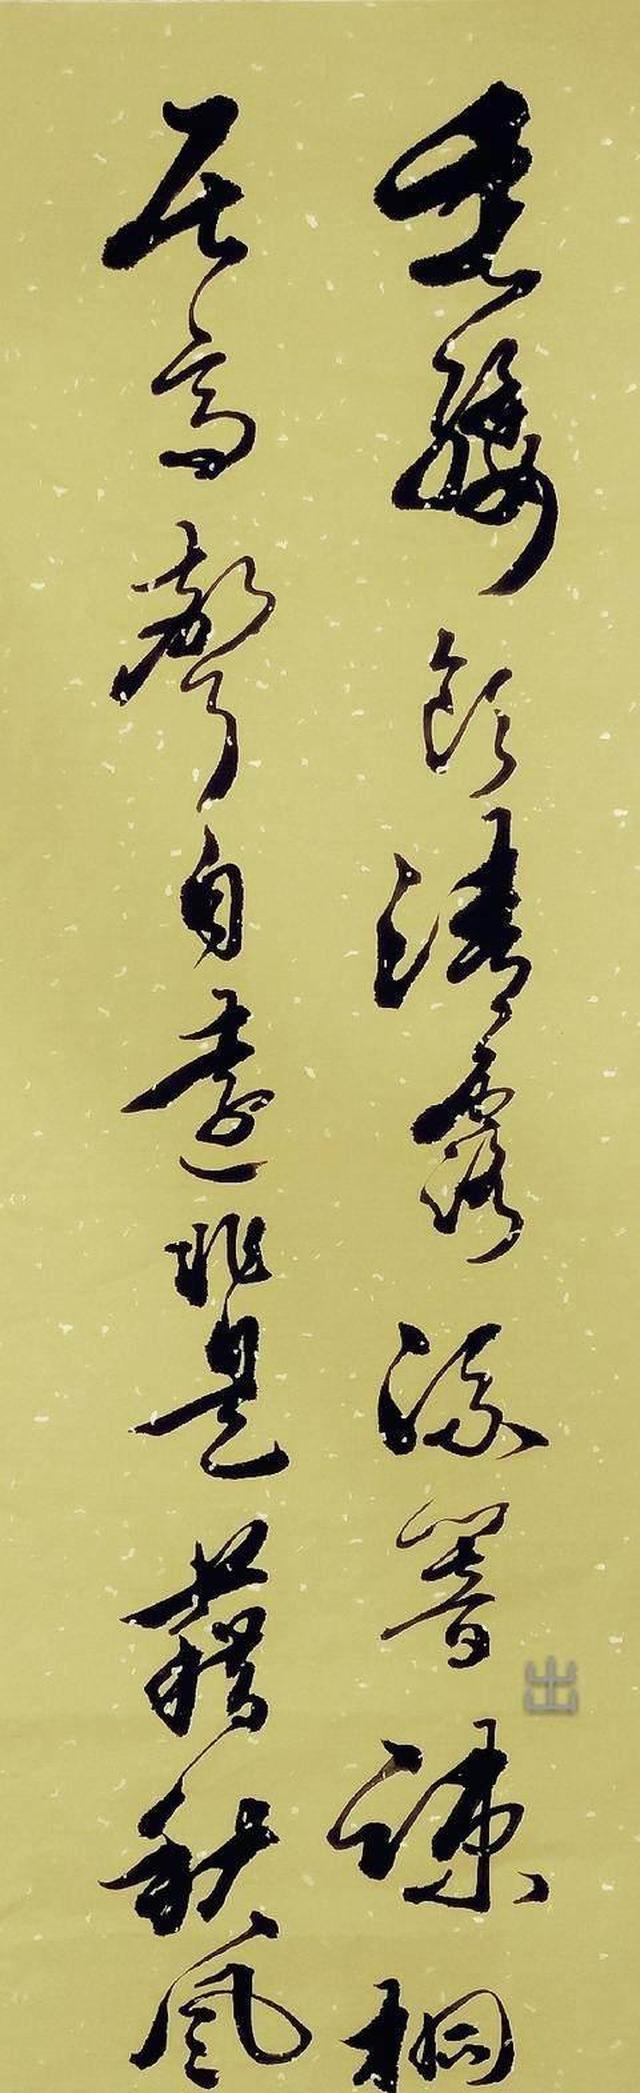 垂緌飲清露流響出疎桐
居高聲自遠非是藉秋風